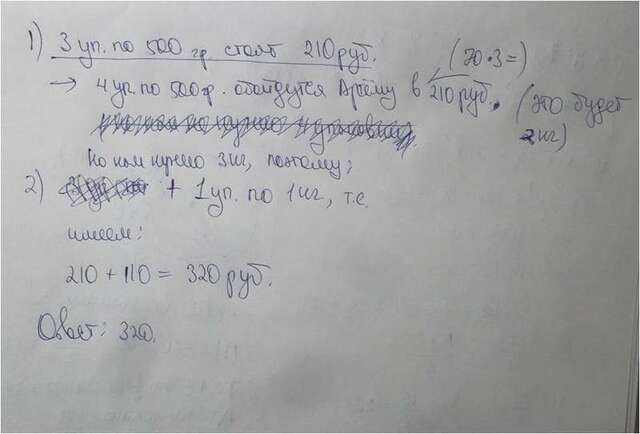 1) 3 уп. по 500 гр. стоят 210 руб.
(70·3=)
→ 4 уп. по 500 гр. обойдутся Артёму в 210 руб. (это будет 2 кг)
Но нам нужно 3 кг, поэтому:
2) + 1 уп. по 1 кг, т.е.
имеем:
210 + 110 = 320 руб.
Ответ: 320.